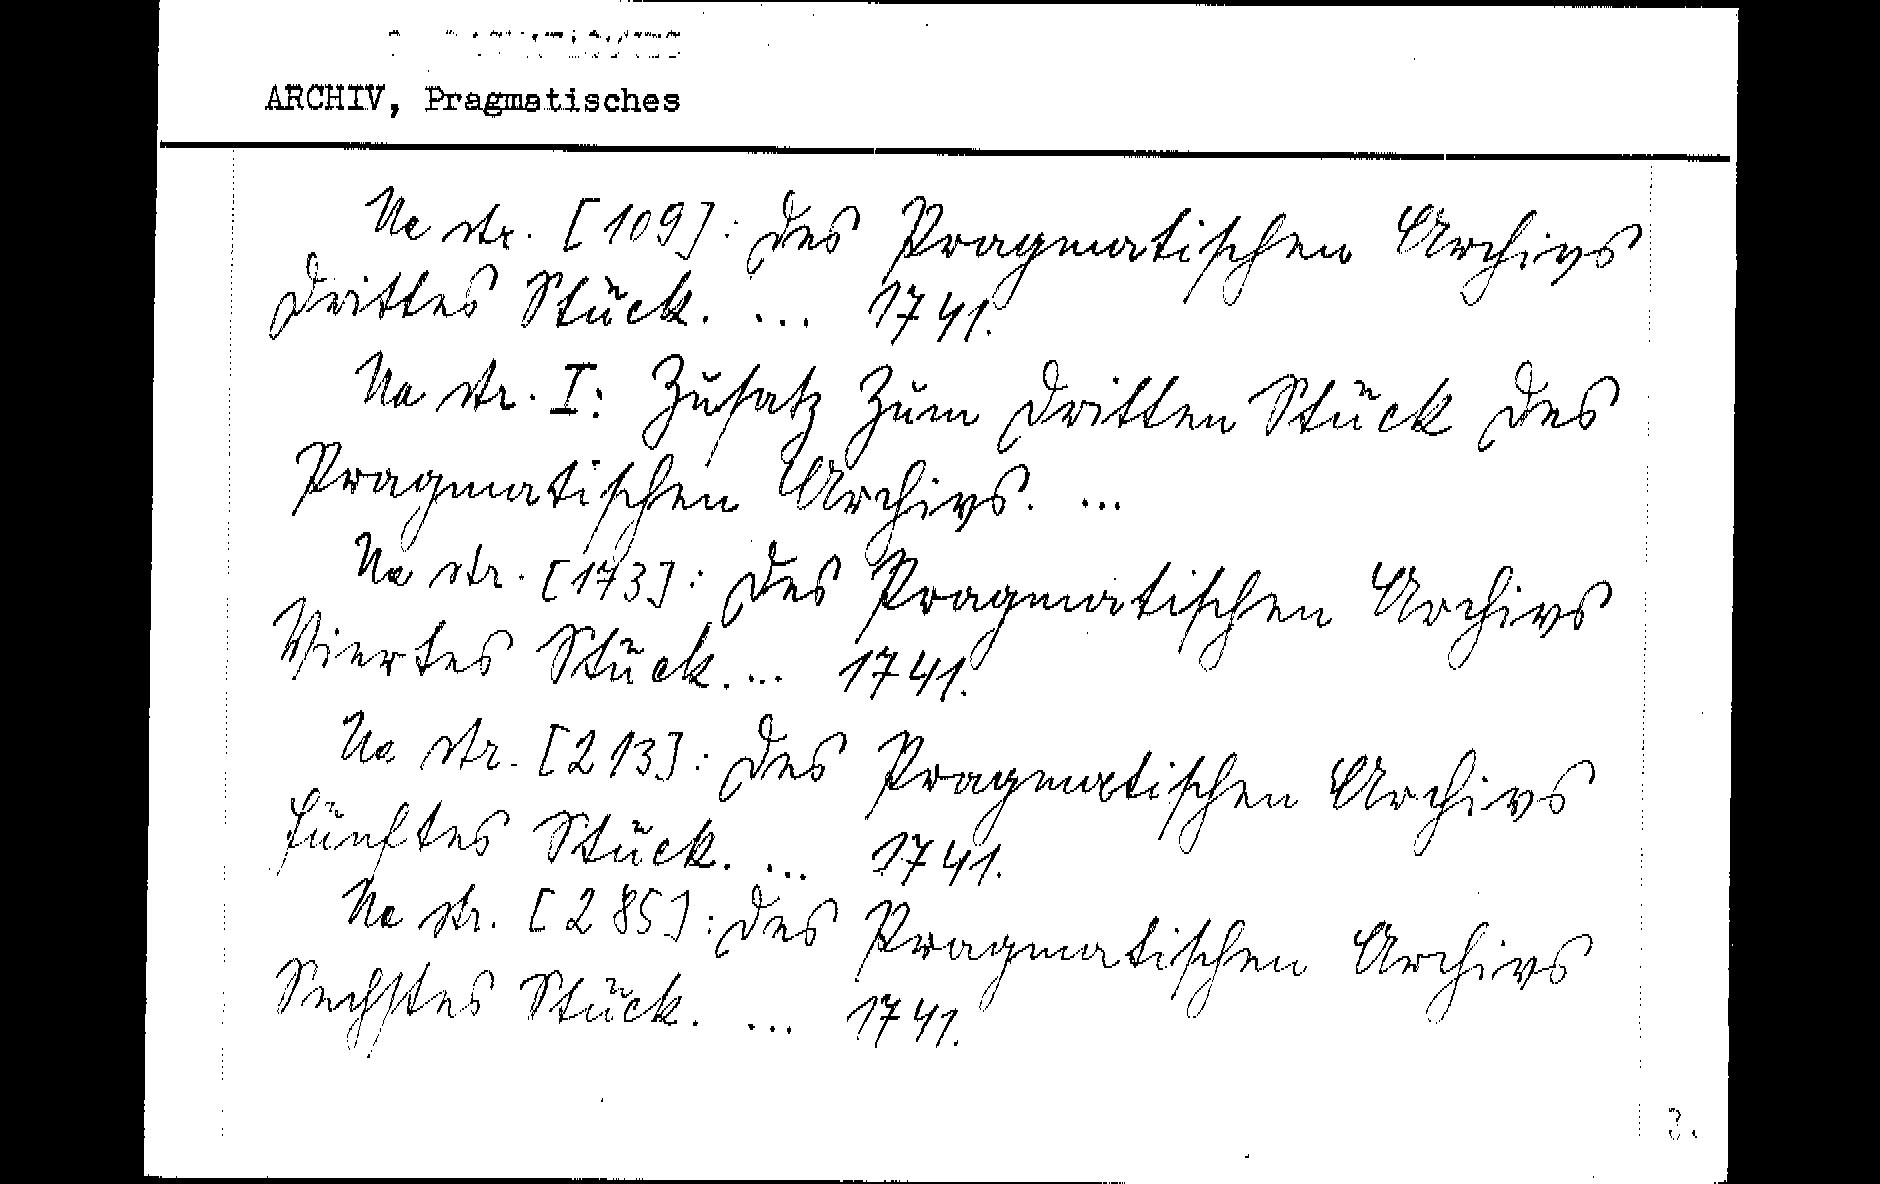 ARCHIV, Pragmatisches
Na str. [109]: Des Pragmatischen Archivs
Drittes Stück. ... 1741.
Na str. I: Zusatz Zum Dritten Stück Des
Pragmatischen Archivs. ...
Na str. [173]: Des Pragmatischen Archivs
Viertes Stück. ... 1741.
Na str. [213]: Des Pragmatischen Archivs
Fünftes Stück. ... 1741.
Na str. [285]: Des Pragmatischen Archivs
Sechstes Stück. ... 1741.
3.